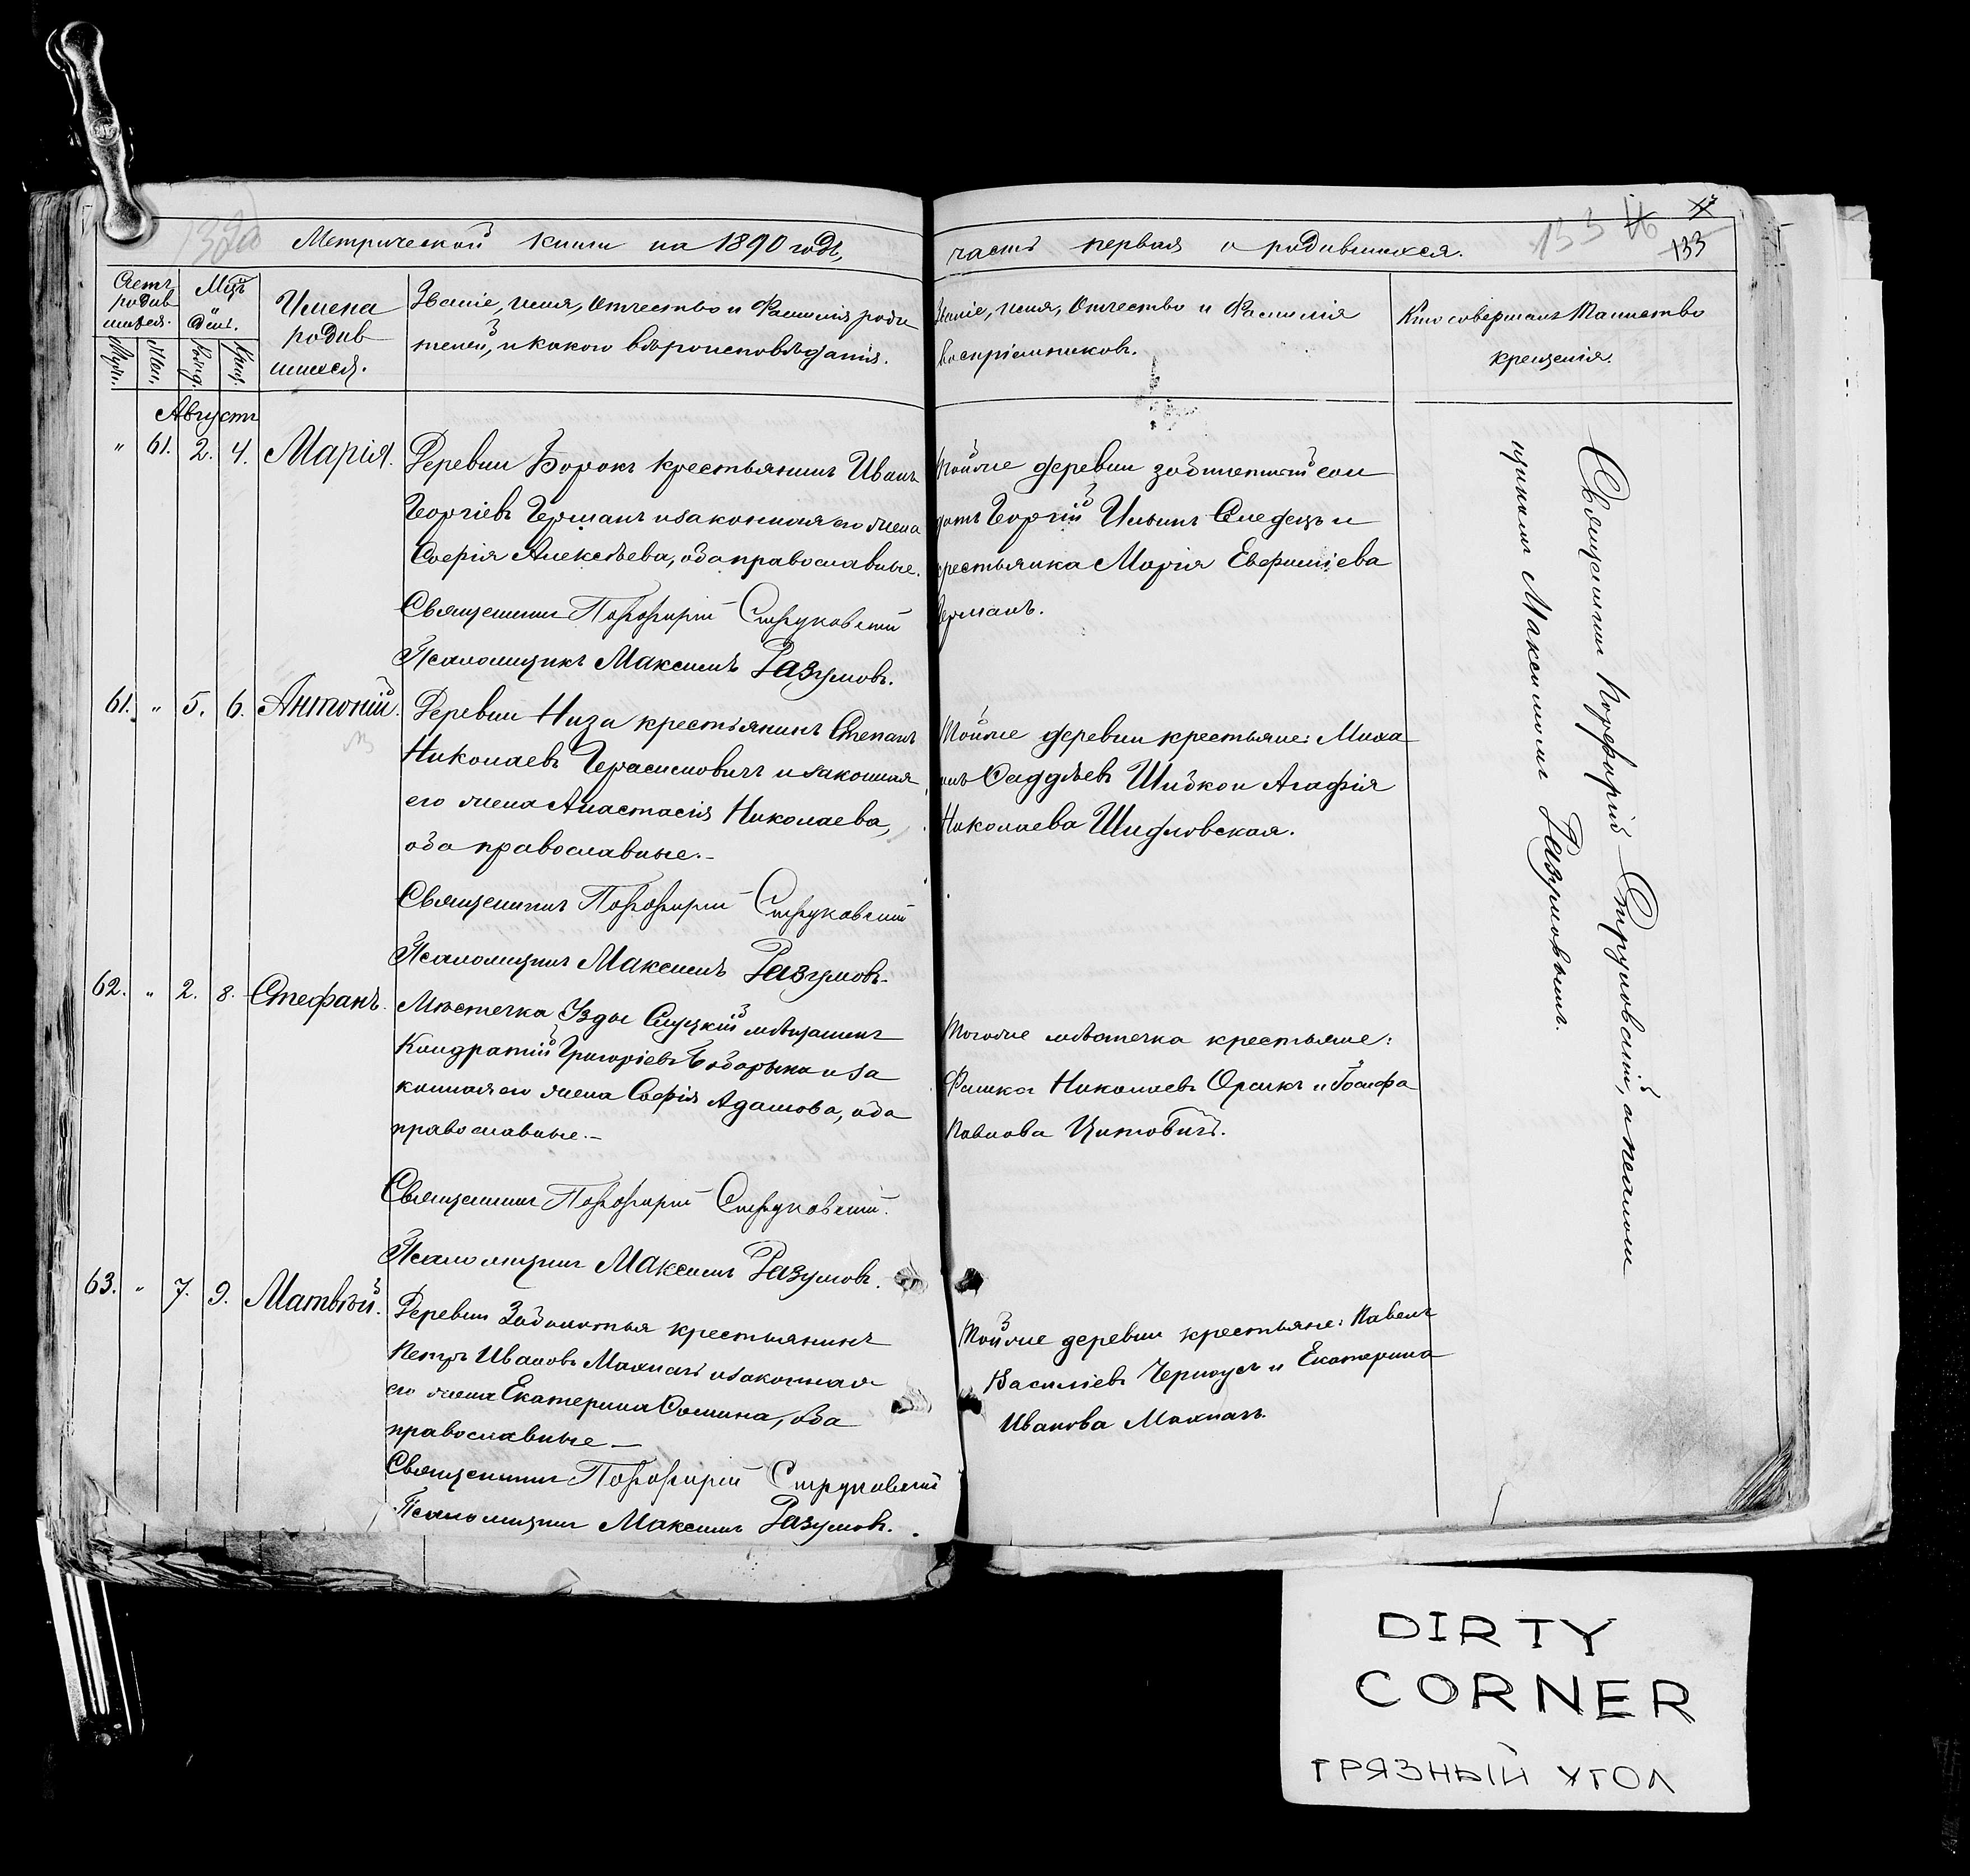 Метрической книги на 1890 годъ,
Счетъ родив шихся.
Муж.
Жен.
Мцъ День.
Рожд.
Крещ.
Имена
родив
шихся.
Званіе, имя, отчество и фамилія роди
телей, и какого вѣроисповѣданія.
Августъ
" 61. 2. 4. Марія.
Деревни Борокъ крестьянинъ Иванъ
Георгіевъ Германъ и законная его жена
Софія Алексѣева, оба православные.
Священникъ Порфирій Струковскій
Псаломщикъ Максимъ Разумовъ.
61. " 5. 6. Антоній.
Деревни Низа крестьянинъ Степанъ
Николаевъ Герасимовичъ и законная
его жена Анастасія Николаева,
оба православные.
Священникъ Порфирій Струковскій
Псаломщикъ Максимъ Разумовъ.
62. " 2. 8. Стефанъ.
Мѣстечка Узды Слуцкій мѣщанинъ
Кондратій Григоріевъ и за
конная его жена Софія Адамова, оба
православные.
Священникъ Порфирій Струковскій.
Псаломщикъ Максимъ Разумовъ.
63. " 7. 9. Матвѣй.
Деревни Заболотья крестьянинъ
Петръ Ивановъ Махначъ и законная
его жена Екатерина Сомина, оба
православные
Священникъ Порфирій Струковскій
Псаломщикъ Максимъ Разумовъ.
часть первая о родившихся.
133
133
Званіе, имя, отчество и фамилія
воспріемниковъ.
Кто совершалъ таинство
крещенія.
Тойже деревни сол
датъ Георгій Ильинъ Следзь и
крестьянка Марія Евфиміева
Германъ.
Тойже деревни крестьяне: Миха
илъ Фаддѣевъ Шибко и Агафія
Николаева Шидловская.
Тогоже мѣстечка крестьяне:
Фашка Николаевъ и Іосифа
Павлова Цитовичъ.
Тойже деревни крестьяне: Павелъ
Василіевъ Черноусъ и Екатерина
Иванова Махначъ.
Священникъ Порфирій Струковскій, с псалом
щикомъ Максимомъ Разумовымъ.
DIRTY
CORNER
ГРЯЗНЫЙ УГОЛ